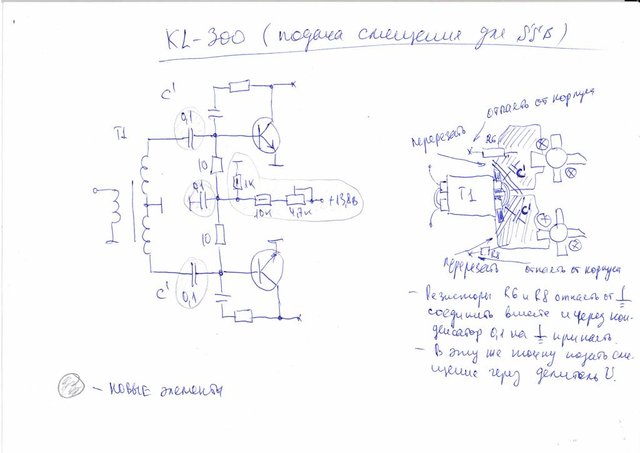 KL-300 (подача смещения для SSB)
C'
0,1
T1
10
0,1
1K
10K
4,7K
+13,8В
10
C'
0,1
отпаять от корпуса
перерезать
R6
C'
T1
C'
R8
перерезать
отпаять от корпуса
- Резисторы R6 и R8 отпаять от
соединить вместе и через кон-
денсатор 0,1 на припаять.
- В эту же точку подать сме-
щение через делитель U.
- новые элементы